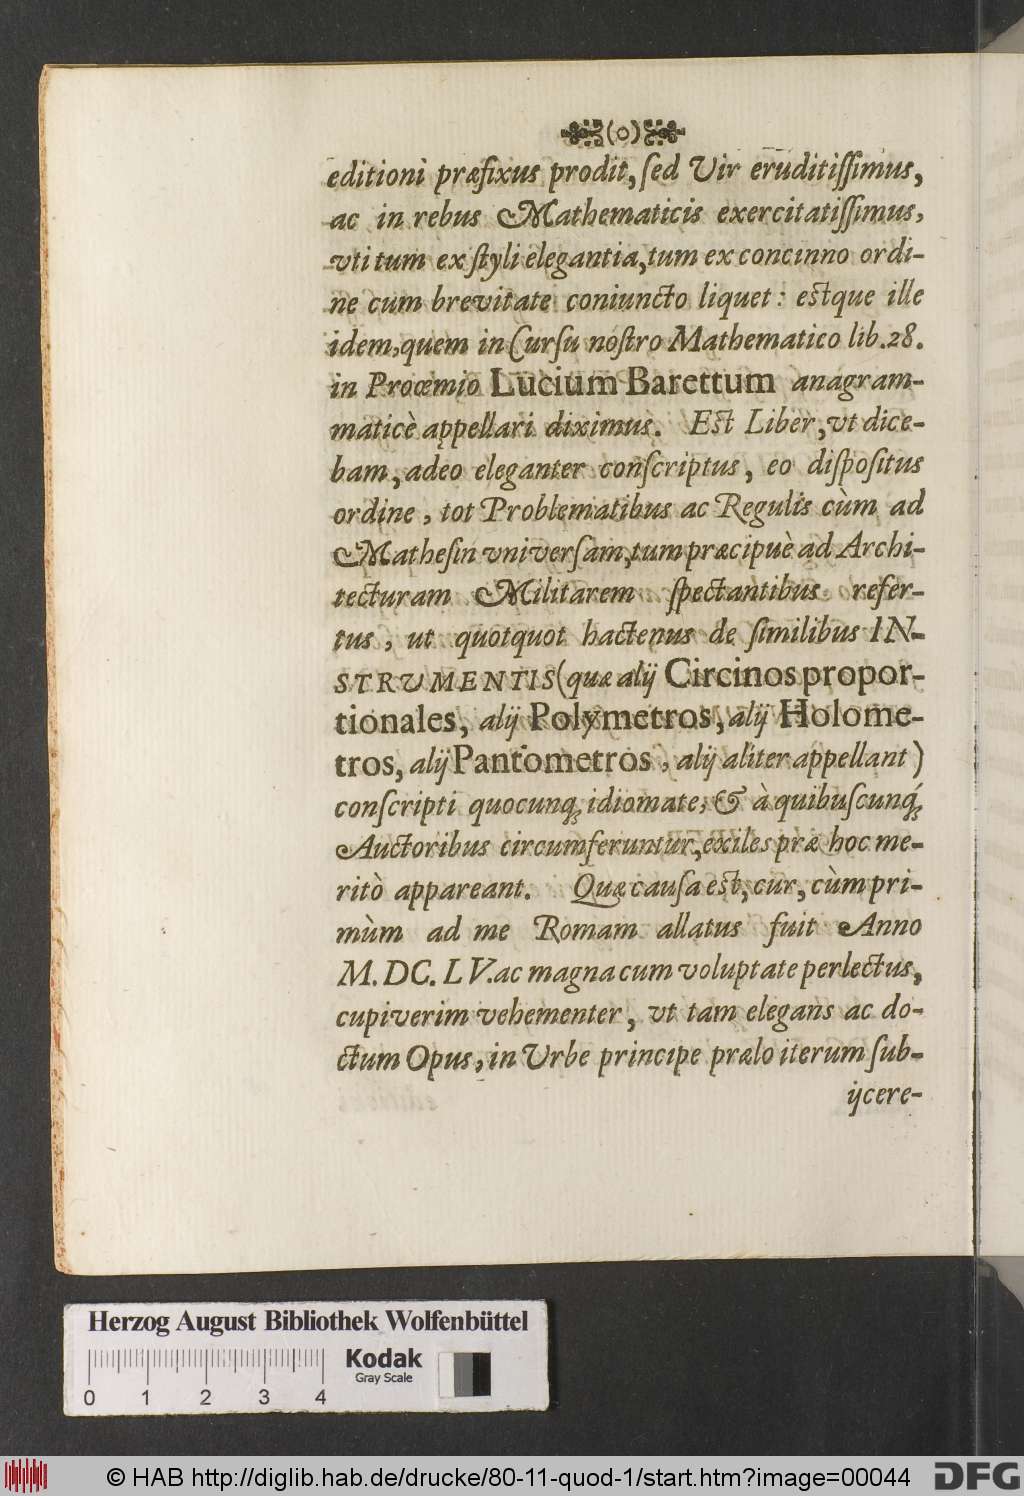 (o)
editioni præfixus prodit, ſed Vir eruditiſſimus,
ac in rebus Mathematicis exercitatiſſimus,
vti tum ex ſtyli elegantia, tum ex concinno ordi-
ne cum brevitate coniuncto liquet: eſtque ille
idem, quem in Curſu noſtro Mathematico lib. 28.
in Proœmio Lucium Barettum anagram-
maticè appellari diximus. Eſt Liber, vt dice-
bam, adeo eleganter conſcriptus, eo diſpoſitus
ordine, tot Problematibus ac Regulis cùm ad
Matheſin vniverſam, tum præcipuè ad Archi-
tecturam Militarem ſpectantibus refer-
tus, ut quotquot hactenus de ſimilibus IN-
STRVMENTIS (quæ alij Circinos propor-
tionales, alij Polymetros, alij Holome-
tros, alij Pantometros, alij aliter appellant)
conſcripti quocunq; idiomate, & à quibuſcunq́;
Auctoribus circumferuntur, exiles præ hoc me-
ritò appareant. Quæ cauſa eſt, cur, cùm pri-
mùm ad me Romam allatus fuit Anno
M. DC. LV. ac magna cum voluptate perlectus,
cupiverim vehementer, vt tam elegans ac do-
ctum Opus, in Vrbe principe prælo iterum ſub-
ijcere-
Herzog August Bibliothek Wolfenbüttel
Kodak
Gray Scale
0 1 2 3 4
© HAB http://diglib.hab.de/drucke/80-11-quod-1/start.htm?image=00044
DFG